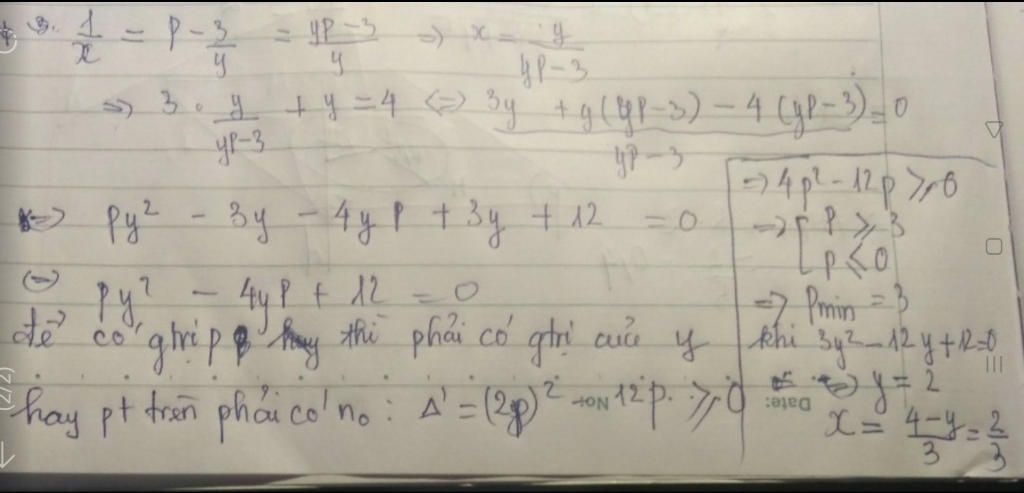 3. 1/x = P - 3/y = (yP-3)/y => x = y/(yP-3)
=> 3 . y/(yP-3) + y = 4 <=> (3y + y(yP-3) - 4(yP-3))/(yP-3) = 0
<=> Py² - 3y - 4yP + 3y + 12 = 0
<=> Py² - 4yP + 12 = 0
để có gtrị P thì phải có gtrị của y
hay pt trên phải có n₀ : Δ' = (2p)² - 12p ≥ 0
=> 4p² - 12p ≥ 0
=> [ P ≥ 3
P ≤ 0
=> Pmin = 3
khi 3y² - 12y + 12 = 0
<=> y = 2
x = (4-y)/3 = 2/3
No:
Date:
(2/2)